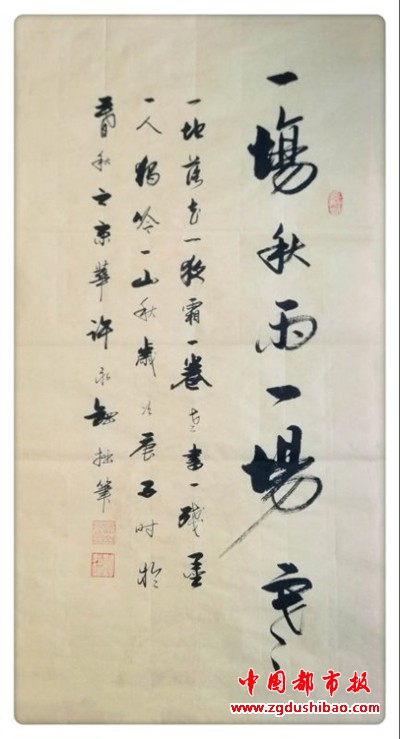 一場秋雨一場寒
一地落花一夜霜一卷書一墨
一人獨吟一山秋歲次庚子時於
暮秋之京華許永拙筆
中国都市报
www.zgdushibao.com